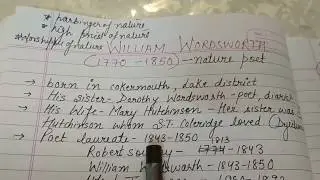 * harbinger of nature
* high priest of nature
* worshipper of nature
WILLIAM WORDSWORTH
(1770 - 1850) → nature poet
→ born in cokermouth, Lake district
→ His sister - Dorothy Wordsworth - poet, diarist
→ His wife - Mary Hutchinson - Her sister was
Hutchinson whom S.T. Coleridge loved
→ Poet laureate - 1843-1850
1813
Robert - 1774 - 1843
William - 1843-1850